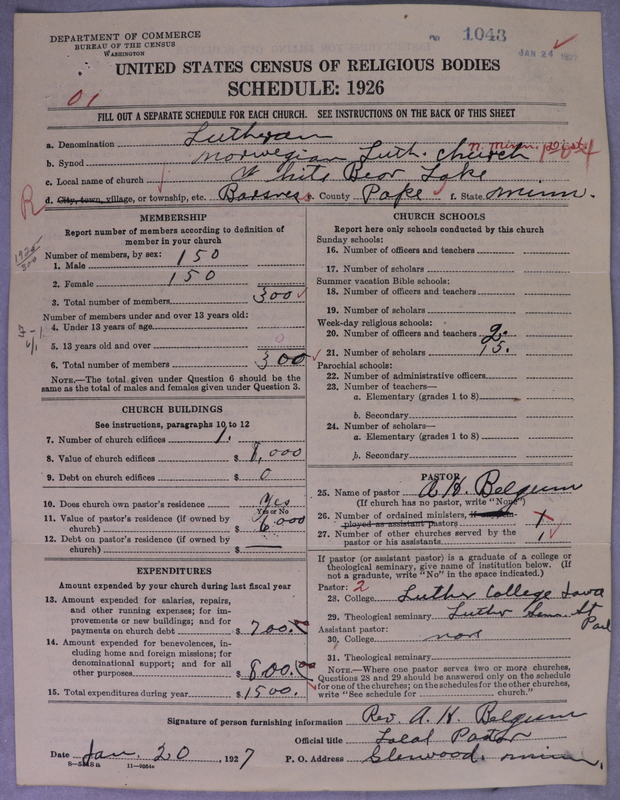 DEPARTMENT OF COMMERCE
BUREAU OF THE CENSUS
WASHINGTON
1043
JAN 24 1927
UNITED STATES CENSUS OF RELIGIOUS BODIES
SCHEDULE: 1926
01
FILL OUT A SEPARATE SCHEDULE FOR EACH CHURCH. SEE INSTRUCTIONS ON THE BACK OF THIS SHEET
a. Denomination Lutheran
N. Minn. Dist.
b. Synod Norwegian Luth. Church
c. Local name of church White Bear Lake
R
d. City, town, village, or township, etc. e. County Pope f. State Minn.
MEMBERSHIP
Report number of members according to definition of
member in your church
Number of members, by sex:
1. Male 150
2. Female 150
3. Total number of members 300
Number of members under and over 13 years old:
4. Under 13 years of age
5. 13 years old and over 0
6. Total number of members 300
NOTE.—The total given under Question 6 should be the
same as the total of males and females given under Question 3.
CHURCH BUILDINGS
See instructions, paragraphs 10 to 12
7. Number of church edifices 1.
8. Value of church edifices $ 8,000
9. Debt on church edifices $ 0
10. Does church own pastor's residence? Yes
Yes or No
11. Value of pastor's residence (if owned by
church) $ 6,000
12. Debt on pastor's residence (if owned by
church) $ —
EXPENDITURES
Amount expended by your church during last fiscal year
13. Amount expended for salaries, repairs,
and other running expenses; for im-
provements or new buildings; and for
payments on church debt $ 700.
14. Amount expended for benevolences, in-
cluding home and foreign missions; for
denominational support; and for all
other purposes $ 800.
15. Total expenditures during year $ 1500.
CHURCH SCHOOLS
Report here only schools conducted by this church
Sunday schools:
16. Number of officers and teachers
17. Number of scholars
Summer vacation Bible schools:
18. Number of officers and teachers
19. Number of scholars
Week-day religious schools:
20. Number of officers and teachers 2.
21. Number of scholars 15.
Parochial schools:
22. Number of administrative officers
23. Number of teachers—
a. Elementary (grades 1 to 8)
b. Secondary
24. Number of scholars—
a. Elementary (grades 1 to 8)
b. Secondary
PASTOR
25. Name of pastor A. H. Belgum
(If church has no pastor, write "None")
26. Number of ordained ministers,
ployed as assistant pastors
27. Number of other churches served by the
pastor or his assistants 1
If pastor (or assistant pastor) is a graduate of a college or
theological seminary, give name of institution below. (If
not a graduate, write "No" in the space indicated.)
Pastor: 2
28. College Luther College Iowa
29. Theological seminary Luther Sem. St
Paul
Assistant pastor:
30. College none
31. Theological seminary
NOTE.—Where one pastor serves two or more churches,
Questions 28 and 29 should be answered only on the schedule
for one of the churches; on the schedules for the other churches,
write "See schedule for church."
Signature of person furnishing information Rev. A. H. Belgum
Official title Local Pastor
Date Jan. 20, 1927 P. O. Address Glenwood, Minn.
11—9064